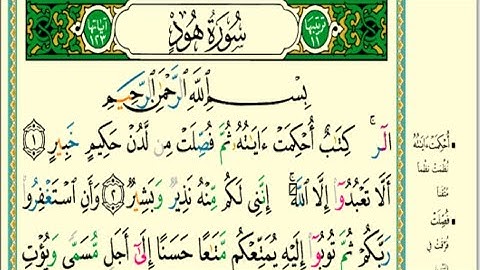 ترتيبها ١١
سُورَةُ هُودٍ
آياتها ١٢٣
بِسْمِ اللَّهِ الرَّحْمَٰنِ الرَّحِيمِ
الٓر ۚ كِتَٰبٌ أُحْكِمَتْ ءَايَٰتُهُۥ ثُمَّ فُصِّلَتْ مِن لَّدُنْ حَكِيمٍ خَبِيرٍ ١
أَلَّا تَعْبُدُوٓا۟ إِلَّا ٱللَّهَ ۚ إِنَّنِى لَكُم مِّنْهُ نَذِيرٌ وَبَشِيرٌ ٢ وَأَنِ ٱسْتَغْفِرُوا۟
رَبَّكُمْ ثُمَّ تُوبُوٓا۟ إِلَيْهِ يُمَتِّعْكُم مَّتَٰعًا حَسَنًا إِلَىٰٓ أَجَلٍ مُّسَمًّى وَيُؤْتِ
أُحْكِمَتْ ءَايَٰتُهُ
نُظِمَتْ نَظْماً
مُتْقَناً
فُصِّلَتْ
فُرِّقَتْ فِي